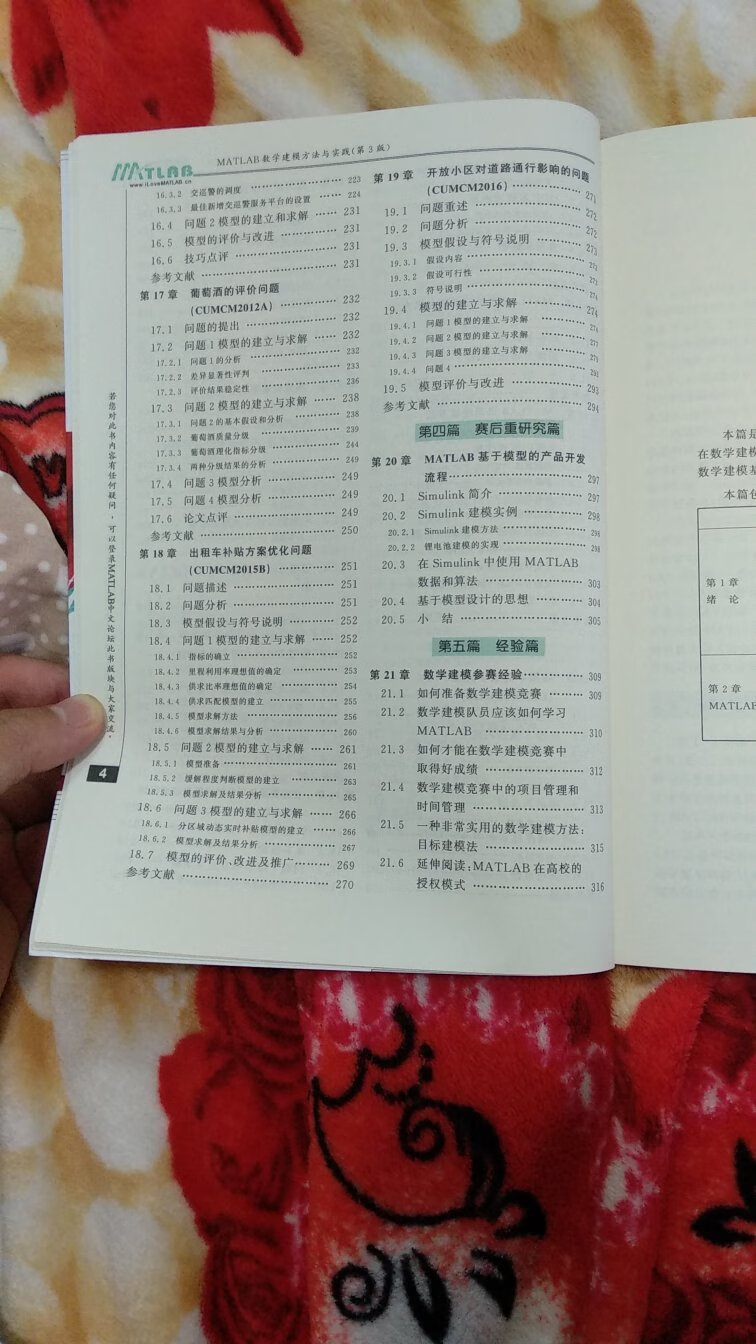 MATLAB
www.iLoveMATLAB.cn
MATLAB数学建模方法与实践(第3版)
16.3.2 交巡警的调度 …… 223
16.3.3 最佳新增交巡警服务平台的设置 …… 224
16.4 问题2模型的建立和求解 …… 231
16.5 模型的评价与改进 …… 231
16.6 技巧点评 …… 231
参考文献 …… 231
第17章 葡萄酒的评价问题
(CUMCM2012A) …… 232
17.1 问题的提出 …… 232
17.2 问题1模型的建立与求解 …… 232
17.2.1 问题1的分析 …… 232
17.2.2 差异显著性评判 …… 233
17.2.3 评价结果稳定性 …… 236
17.3 问题2模型的建立与求解 …… 238
17.3.1 问题2的基本假设和分析 …… 238
17.3.2 葡萄酒质量分级 …… 239
17.3.3 葡萄酒理化指标分级 …… 244
17.3.4 两种分级结果的分析 …… 249
17.4 问题3模型分析 …… 249
17.5 问题4模型分析 …… 249
17.6 论文点评 …… 249
参考文献 …… 250
第18章 出租车补贴方案优化问题
(CUMCM2015B) …… 251
18.1 问题描述 …… 251
18.2 问题分析 …… 251
18.3 模型假设与符号说明 …… 252
18.4 问题1模型的建立与求解 …… 252
18.4.1 指标的确立 …… 252
18.4.2 里程利用率理想值的确定 …… 253
18.4.3 供求比率理想值的确定 …… 254
18.4.4 供求匹配模型的建立 …… 255
18.4.5 模型求解方法 …… 256
18.4.6 模型求解结果与分析 …… 260
18.5 问题2模型的建立与求解 …… 261
18.5.1 模型准备 …… 261
18.5.2 缓解程度判断模型的建立 …… 263
18.5.3 模型求解及结果分析 …… 265
18.6 问题3模型的建立与求解 …… 266
18.6.1 分区域动态实时补贴模型的建立 …… 266
18.6.2 模型求解及结果分析 …… 267
18.7 模型的评价、改进及推广 …… 269
参考文献 …… 270
第19章 开放小区对道路通行影响的问题
(CUMCM2016) …… 271
19.1 问题重述 …… 272
19.2 问题分析 …… 272
19.3 模型假设与符号说明 …… 273
19.3.1 假设内容 …… 273
19.3.2 假设可行性 …… 273
19.3.3 符号说明 …… 274
19.4 模型的建立与求解 …… 274
19.4.1 问题1模型的建立与求解 …… 274
19.4.2 问题2模型的建立与求解 ……
19.4.3 问题3模型的建立与求解 ……
19.4.4 问题4 ……
19.5 模型评价与改进 …… 293
参考文献 …… 294
第四篇 赛后重研究篇
第20章 MATLAB基于模型的产品开发
流程 …… 297
20.1 Simulink简介 …… 297
20.2 Simulink建模实例 …… 298
20.2.1 Simulink建模方法 …… 298
20.2.2 锂电池建模的实现 …… 298
20.3 在Simulink中使用MATLAB
数据和算法 …… 303
20.4 基于模型设计的思想 …… 304
20.5 小 结 …… 305
第五篇 经验篇
第21章 数学建模参赛经验 …… 309
21.1 如何准备数学建模竞赛 …… 309
21.2 数学建模队员应该如何学习
MATLAB …… 310
21.3 如何才能在数学建模竞赛中
取得好成绩 …… 312
21.4 数学建模竞赛中的项目管理和
时间管理 …… 313
21.5 一种非常实用的数学建模方法:
目标建模法 …… 315
21.6 延伸阅读:MATLAB在高校的
授权模式 …… 316
若您对此书内容有任何疑问,可以登录MATLAB中文论坛此书版块与大家交流。
4
本篇是
在数学建模
数学建模基
本篇包
第1章
绪 论
第2章
MATLAB